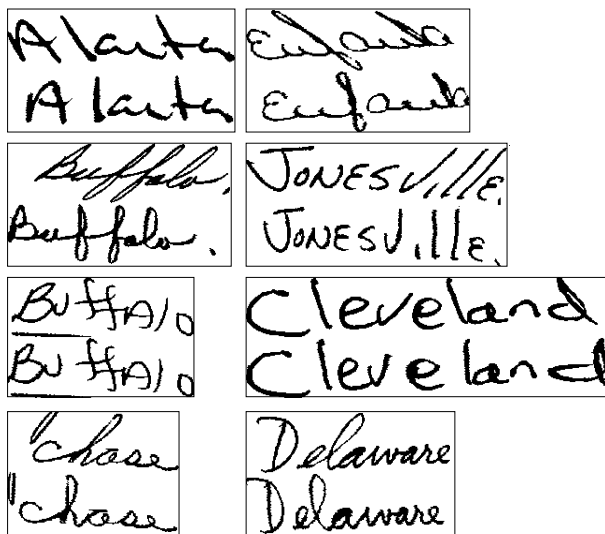 Alanta
Alanta
Eufaula
Eufaula
Buffalo.
Buffalo.
JONESVille.
JONESVille.
BuffAlo
BuffAlo
Cleveland
Cleveland
'chase
'chase
Delaware
Delaware